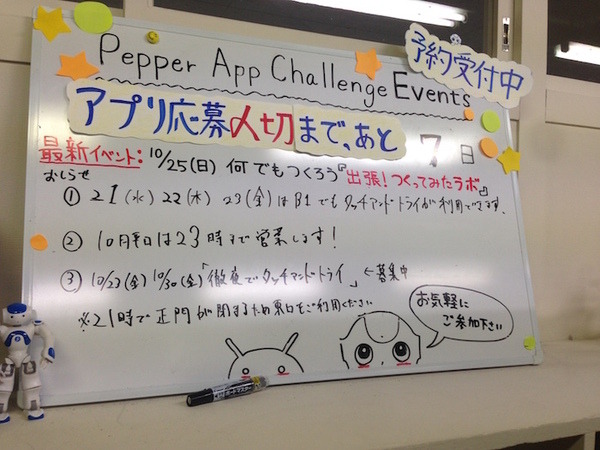 Pepper App Challenge Events
予約受付中
アプリ応募〆切まで、あと 7 日
最新イベント: 10/25(日) 何でもつくろう『出張!つくってみたラボ』
おしらせ
① 21(水) 22(木) 23(金)はB1でもタッチアンドトライが利用できます.
② 10月平日は23時まで営業します!
③ 10/23(金) 10/30(金)「徹夜でタッチアンドトライ」 ←募集中
※21時で正門が閉まるため東口をご利用ください
お気軽に
ご参加下さい